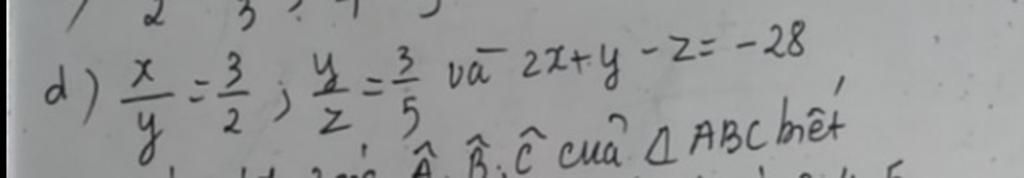 2 3
d) x/y = 3/2 ; y/z = 3/5 và 2x + y - z = -28
Â, B̂, Ĉ của Δ ABC biết